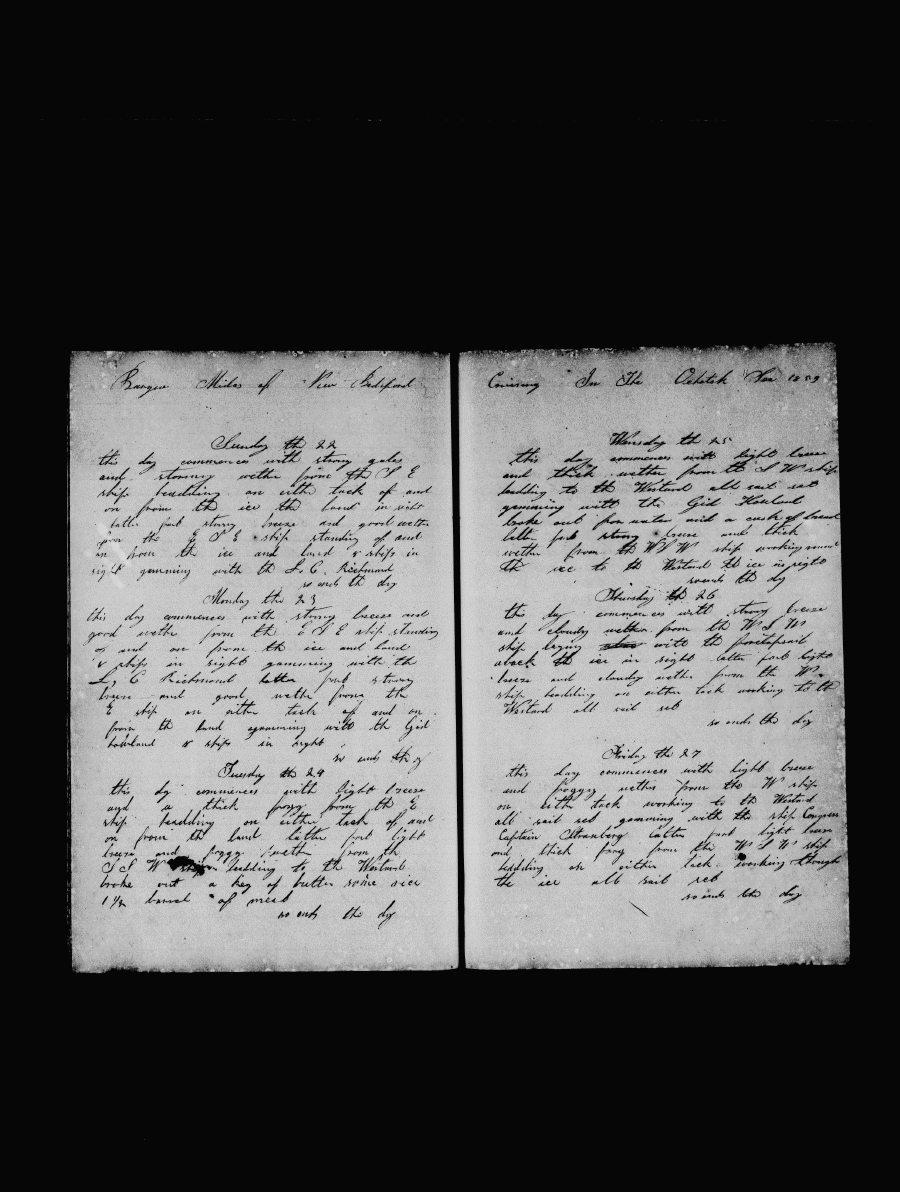 Barque Midas of New Bedford
Sunday th 22
this day commences with strong gales
and stormy wether from the S E
ship heading on eithe tack of and
on from the ice the land in sight
latter part strong breeze and good wether
from the E S E ship standing of and
on from the ice and land 8 ships in
sight gamming with the L. C. Richmond
so ends th day
Monday the 23
this day commences with strong breeze and
good wethe from the E S E ship standing
of and on from th ice and land
8 ships in sight gamming with the
L. C Richmond latter part strong
breeze and good wethe from the
E ship on eithe tack of and on
from th land gamming with th Gid
howland 8 ships in sight
so ends th dy
Tuesday th 24
this dy commences with light breeze
and a thick fogg from th E
ship headding on eithe tack of and
on from th land latter part light
breeze and foggy wether from th
S S W ship headding to th Westard
broke out a keg of butter some rice
1 1/2 barral of meal
so ends the dy
Cruising In The Ochotsk Sea 1859
Wensday th 25
this day commences with light breese
and thick wether from th S W ship
headding to th Westard all sail set
gamming witt the Gid Howland
broke out for water and a cask of bread
latter part strong breese and thick
wether from th W S W ship working round
th ice to th Westard th ice in sight
so ends th dy
Thursday th 26
this dy commences with strong breeze
and cloudy wether from th W S W
ship laying with th foretopsail
aback th ice in sight latter part light
breeze and cloudy wether from th W
ship headding on eithe tack working to th
Westard all sail set
so ends th dy
Friday th 27
this day commences with light breeze
and foggy wether from the W ship
on eithe tack working to th Westard
all sail set gamming with the ship Congress
Captain Stranberg latter part light breese
and thick fogg from th W S W ship
headding on eithe tack working though
the ice all sail set
so ends th day